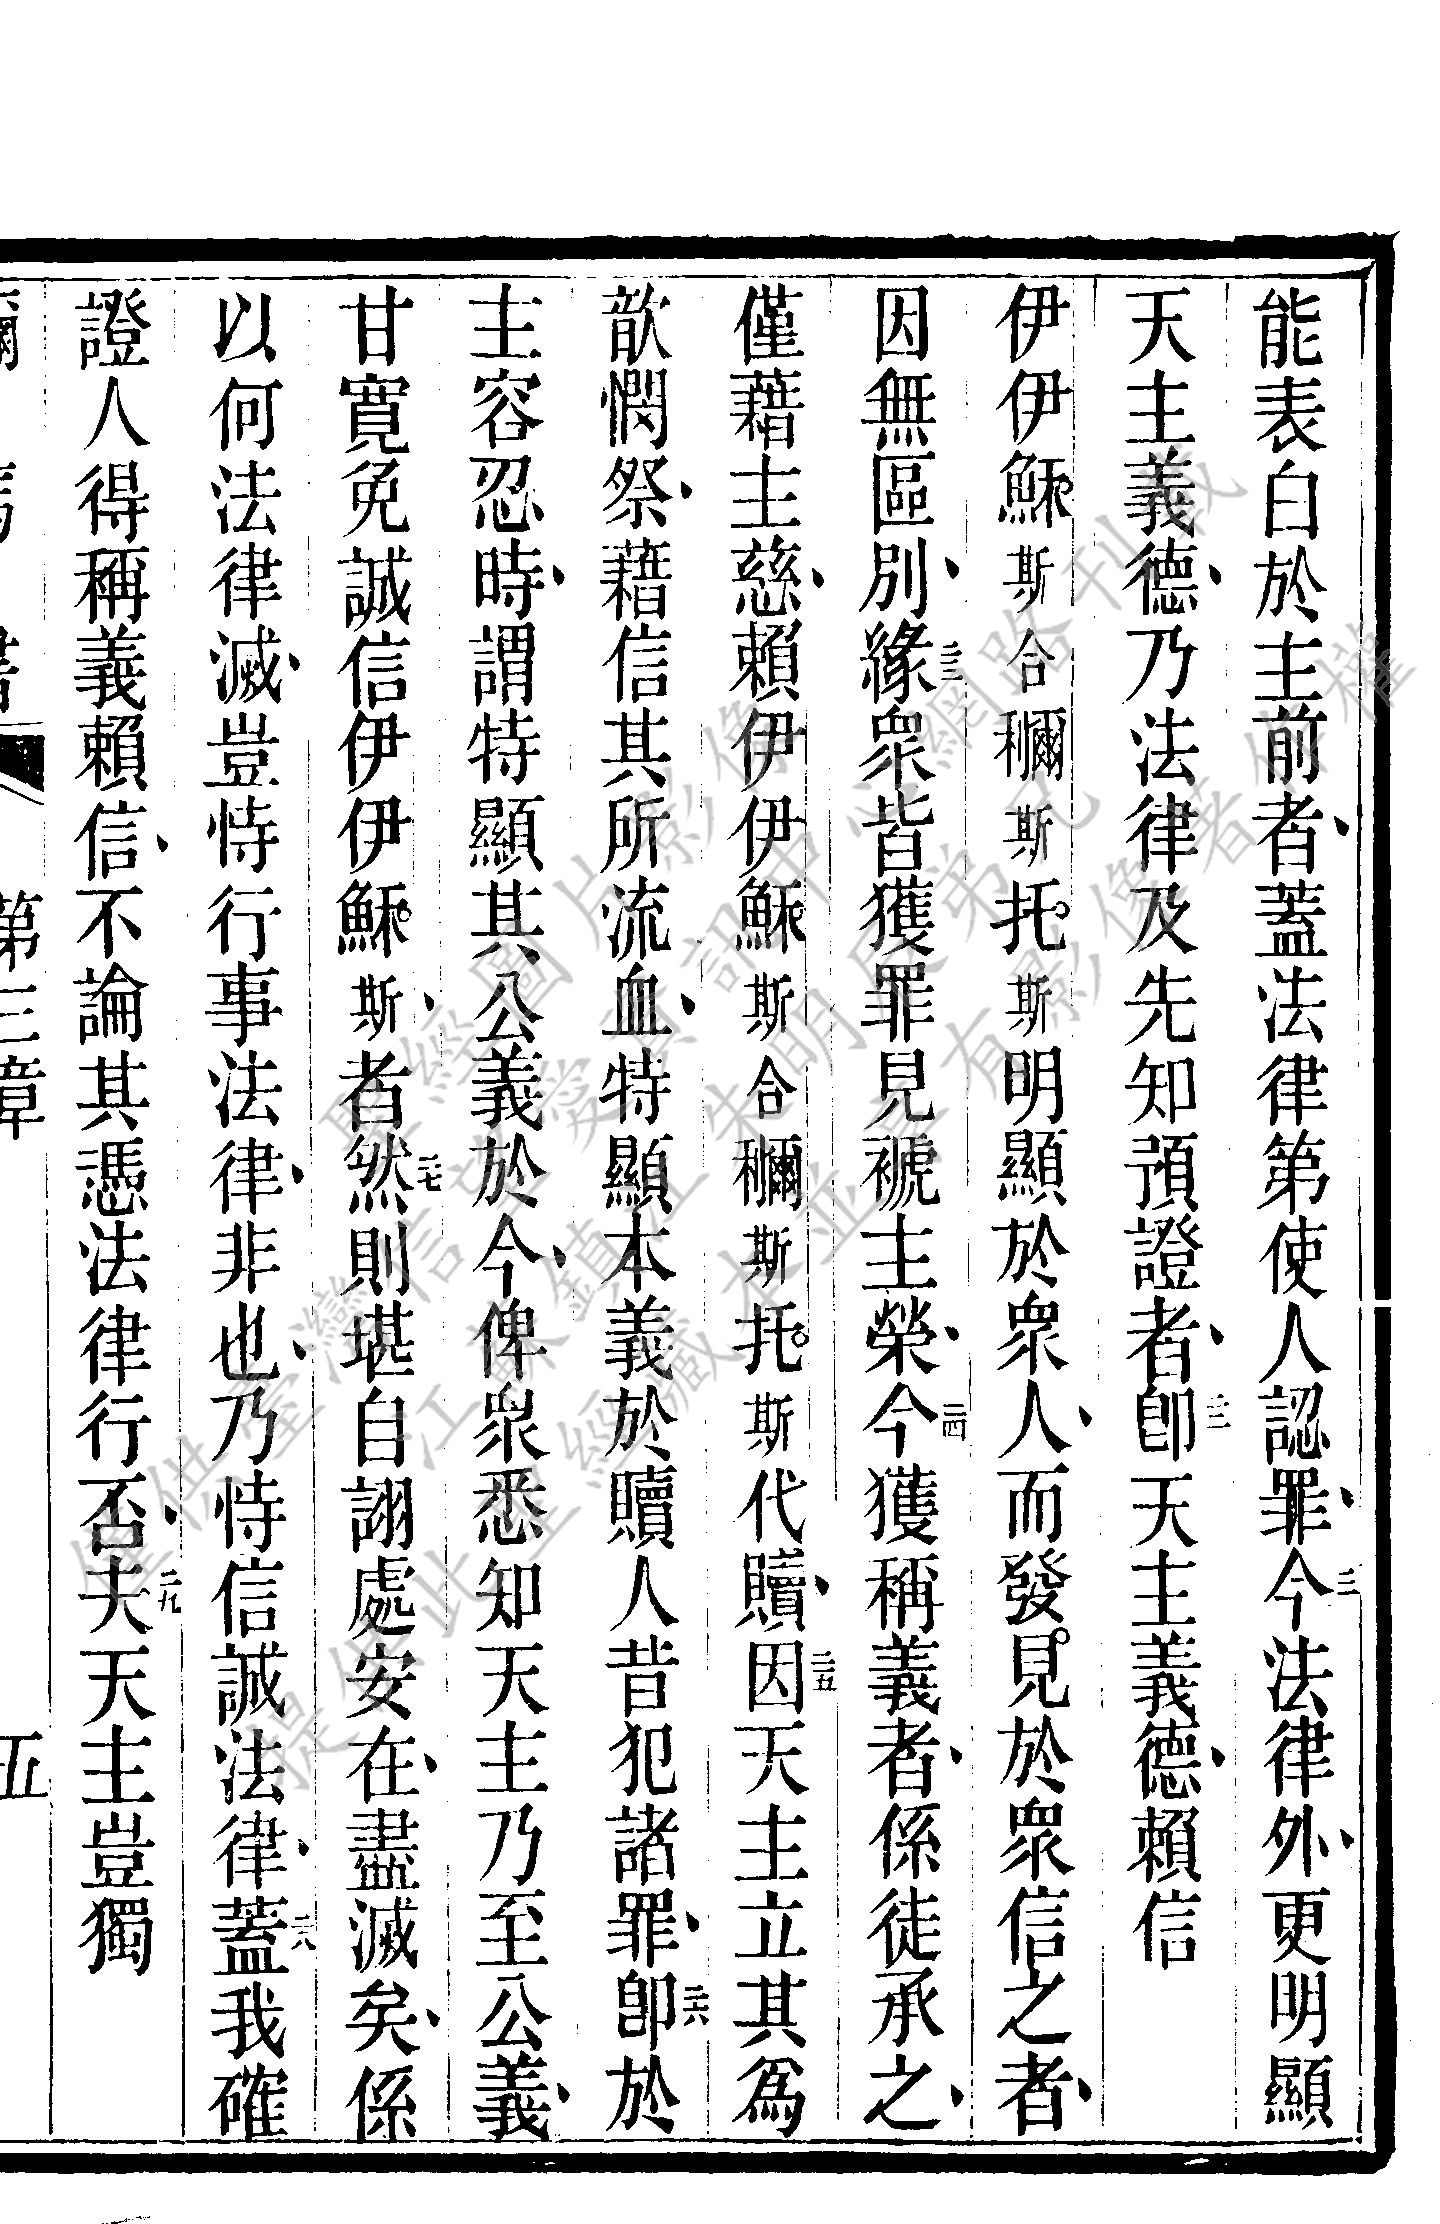 能表白於主前者、蓋法律第使人認罪、二一今法律外、更明顯
天主義德、乃法律及先知預證者、二二卽天主義德、賴信
伊伊穌斯合穪斯托斯明顯於眾人、而發見於眾信之者、
因無區別、二三緣眾皆獲罪見褫主榮、二四今獲稱義者、係徒承之、
僅藉主慈、賴伊伊穌斯合穪斯托斯代贖、二五因天主立其為
歆憫祭、藉信其所流血、特顯本義於贖人昔犯諸罪、二六卽於
主容忍時、謂特顯其公義於今、俾衆悉知天主乃至公義、
甘寬免誠信伊伊穌斯、者二七然則堪自詡處安在、盡滅矣、係
以何法律滅、豈恃行事法律、非也、乃恃信誠法律、二八蓋我確
證人得稱義賴信、不論其憑法律行否、二九夫天主豈獨
第三章 五